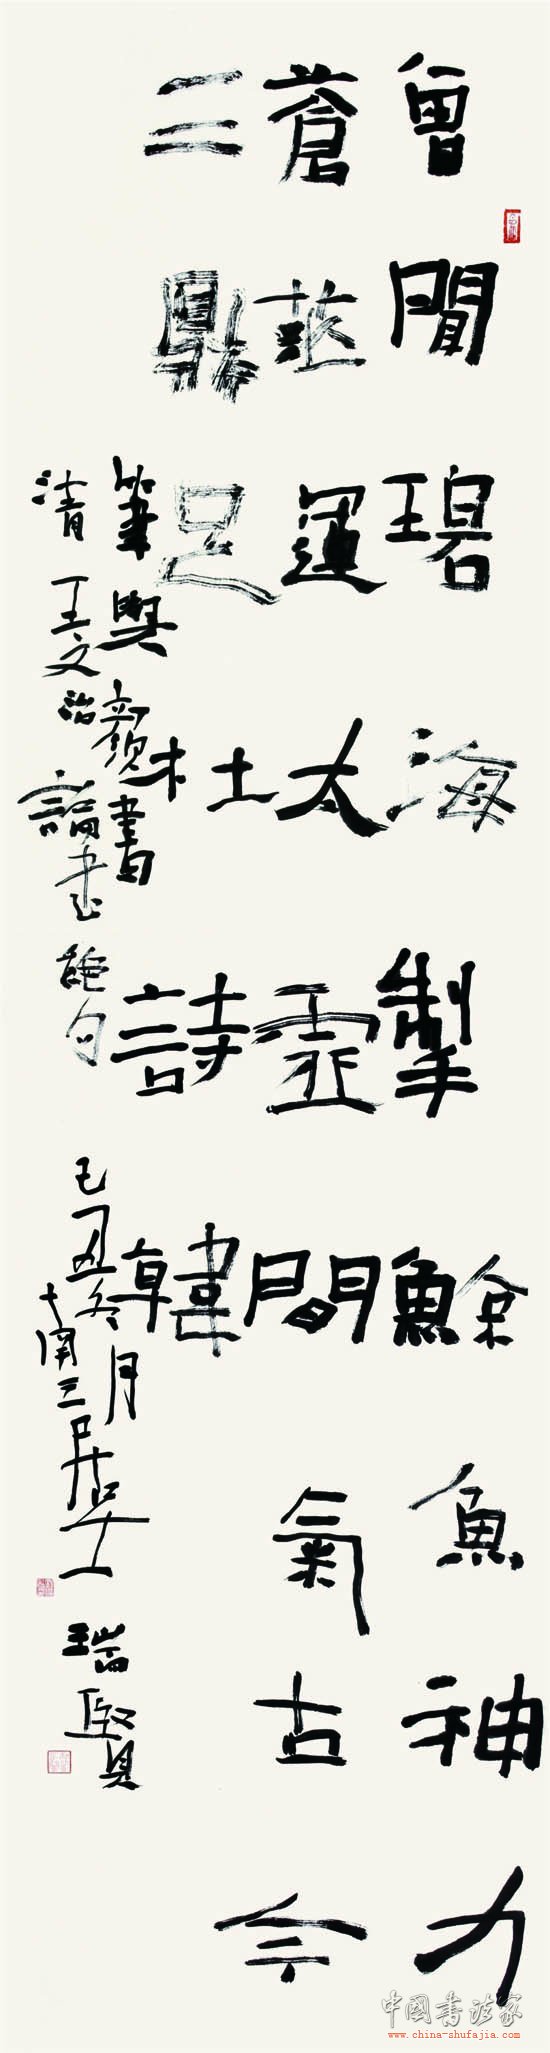 曾聞碧海掣鯨魚神力
蒼茫運太虛間氣古今
三鼎足杜詩韓
筆與顏書
清王文治論書絕句
己丑冬月
三居士瑞賢
中國書法家
www.china-shufajia.com